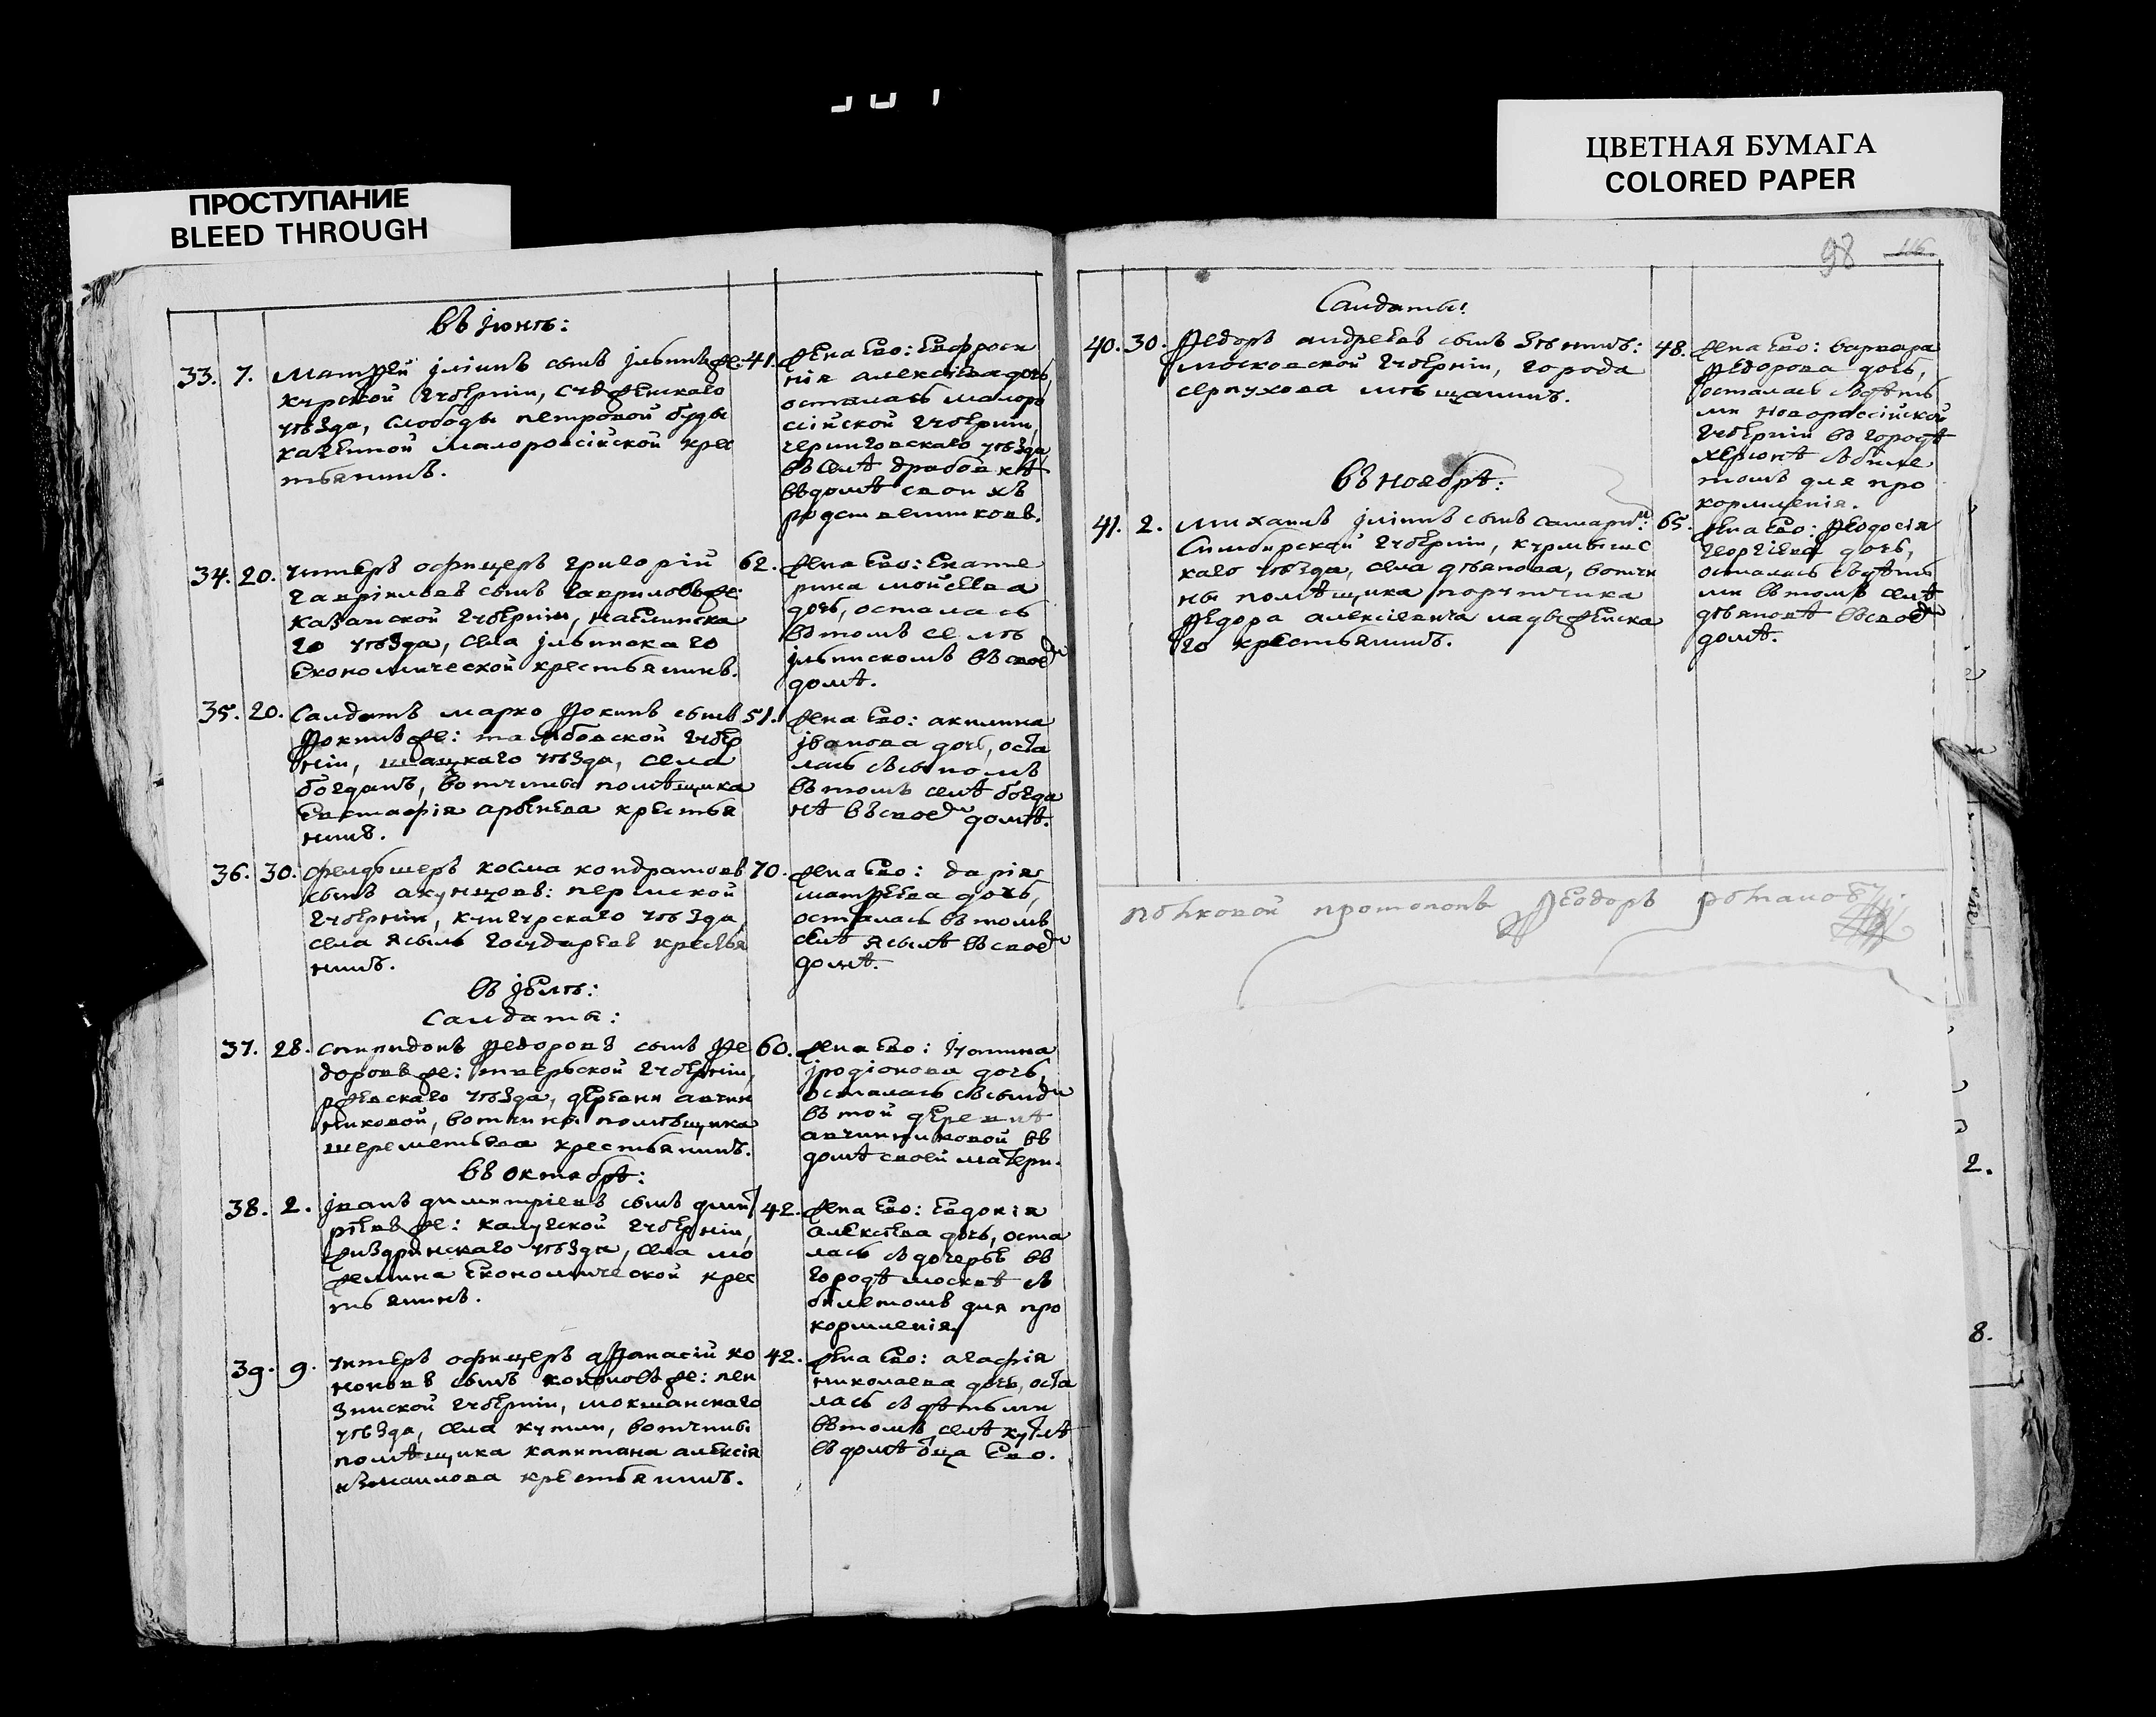 ПРОСТУПАНИЕ
BLEED THROUGH
ЦВЕТНАЯ БУМАГА
COLORED PAPER
98 116
въ іюнѣ:
33. 7. Матѳей іліинъ сынъ ільинъ же: 41.
курской губерніи, суджескаго
уѣзда, слободы петровой буды
казенной малоросійской крес
тьянинъ.
жена Его: Евфроси
нія алексіева дочь,
осталась малоро
сійской губерніи,
черниговскаго уѣзда
въ селѣ драбовкѣ
въ домѣ свои хъ
родственниковъ.
34. 20. унтеръ офицеръ григорій 62.
гавріиловъ сынъ гавриловъ же:
казанской губерніи, мамышска
го уѣзда, села ільинска го
Економической крестьянинъ.
жена Его: Екате
рина мойсеева
дочь, остала сь
въ томъ се лѣ
ільинскомъ въ своем
домѣ.
35. 20. Салдатъ марко ѳокинъ сынъ 51.
ѳокинъ же: тамбовской губер
ніи, шацкаго уѣзда, села
богдань, вотчины помѣщика
Евстафія арбенева крестья
нинъ.
жена Его: акилина
іванова дочь, оста
лась съ сыномъ
въ томъ селѣ богда
нѣ въ своем домѣ.
36. 30. фелдшеръ косма кондратовъ 70.
сынъ акунцовъ: пермской
губерніи, кунгурскаго уѣзда,
села ясыль государевъ крестья
нинъ.
жена Его: дарія
матѳеева дочь,
осталась въ томъ
селѣ ясылѣ въ своем
домѣ.
въ іюлѣ:
Салдаты:
37. 28. спиридонъ ѳедоровъ сынъ ѳе 60.
доровъ же: тверьской губерніи,
ржевскаго уѣзда, деревни авчин
никовой, вотчины помѣщика
шереметьева крестьянинъ.
жена Его: Іулина
іродіонова дочь,
осталась съ сыном
въ той деревнѣ
авчинниковой въ
домѣ своей матери.
въ октябрѣ:
38. 2. іванъ димитріевъ сынъ дмит 42.
ріевъ же: калужской губерніи,
жиздринскаго уѣзда, села мо
желина Економической крес
тьянинъ.
жена Его: Евдокія
алексіева дочь, оста
лась съ дочерью въ
городѣ москвѣ съ
билетомъ для про
кормленія.
39. 9. унтеръ офицеръ аѳанасій ко 42.
ноновъ сынъ кононовъ же: пен
зинской губерніи, мокшанскаго
уѣзда, села кутли, вотчины
помѣщика капитана алексія
измаилова крестьянинъ.
жена Его: агафія
николаева дочь, оста
лась съ дѣтьми
въ томъ селѣ кутлѣ
въ домѣ оца Его.
Салдаты:
40. 30. Ѳедоръ андреевъ сынъ зѣнинъ: 48.
московской губерніи, города
серпухова мѣщанинъ.
жена Его: варвара
ѳедорова дочь,
осталась съ дѣть
ми новоросcійской
губерніи въ городѣ
херсонѣ съ биле
томъ для про
кормленія.
въ ноябрѣ:
41. 2. михаилъ іліинъ сынъ самарин: 65.
Симбирской губерніи, курмышс
каго уѣзда, села дѣянова, вотчи
ны помѣщика порутчика
ѳедора алексіевича надъеженска
го крестьянинъ.
жена Его: ѳеодосія
георгіева дочь,
осталась съ дѣть
ми въ томъ селѣ
дѣяновѣ въ своем
домѣ.
полковой протопопъ Ѳеодоръ романовъ
2.
8.